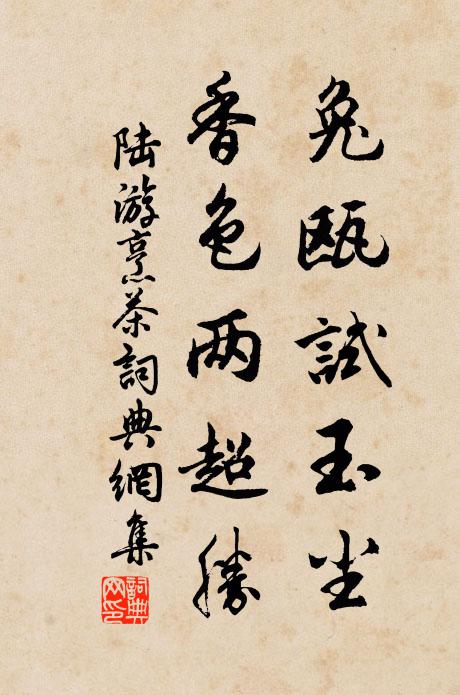 兔甌試玉尘
香色兩超勝
陆游烹茶詞典網集
詞典网印